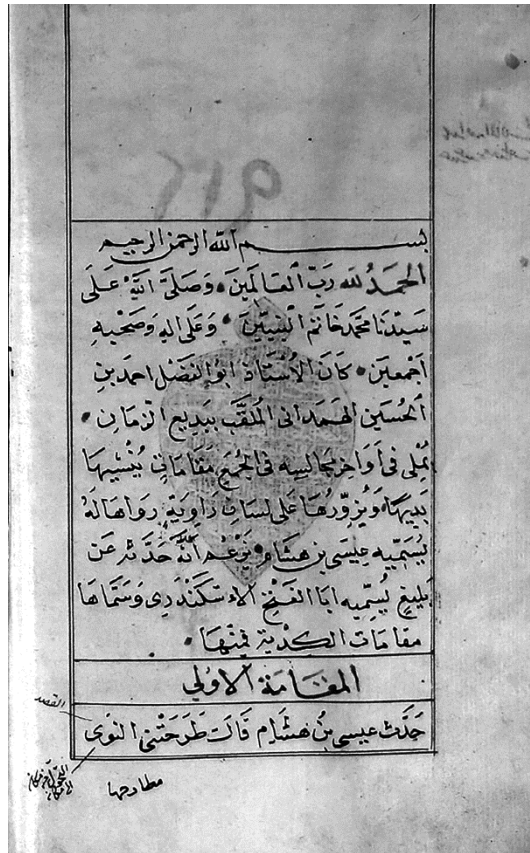 ٩١٦
بسم الله الرحمن الرحيم
الحمد لله رب العالمين وصلى الله على
سيدنا محمد خاتم النبيين وعلى اله وصحبه
اجمعين كان الاستاذ ابو الفضل احمد بن
الحسين الهمدانى الملقب ببديع الزمان
يملى فى اواخر مجالسه فى الجمع مقامات ينشيها
بديها ويزورها على لسان راوية رواها له
يسميه عيسى بن هشام يزعم انه حدثه عن
بليغ يسميه ابا الفتح الاسكندرى وسماها
مقامات الكدية فمنها
المقامة الاولى
حدث عيسى بن هشام قال طرحتنى النوى
القصد
مطارحها